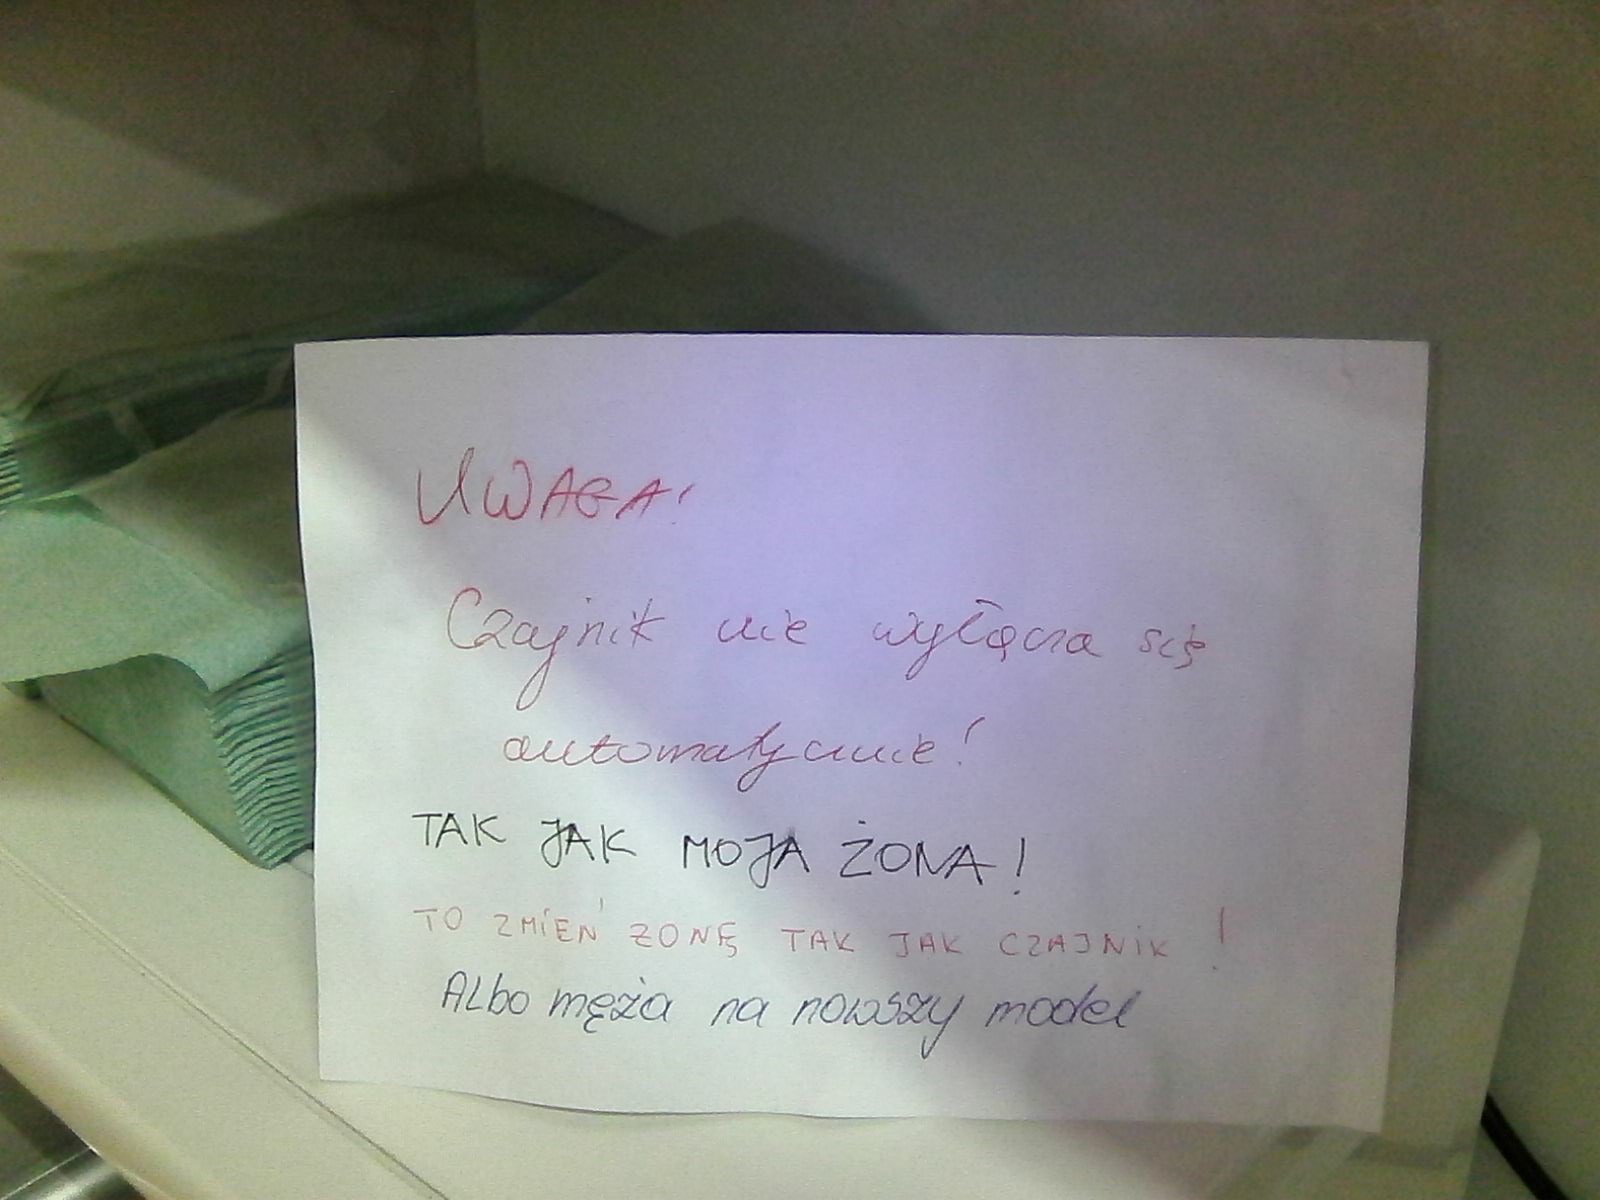 UWAGA!
Czajnik nie wyłącza się
automatycznie!
TAK JAK MOJA ŻONA!
TO ZMIEŃ ZONĘ TAK JAK CZAJNIK !
Albo męża na nowszy model